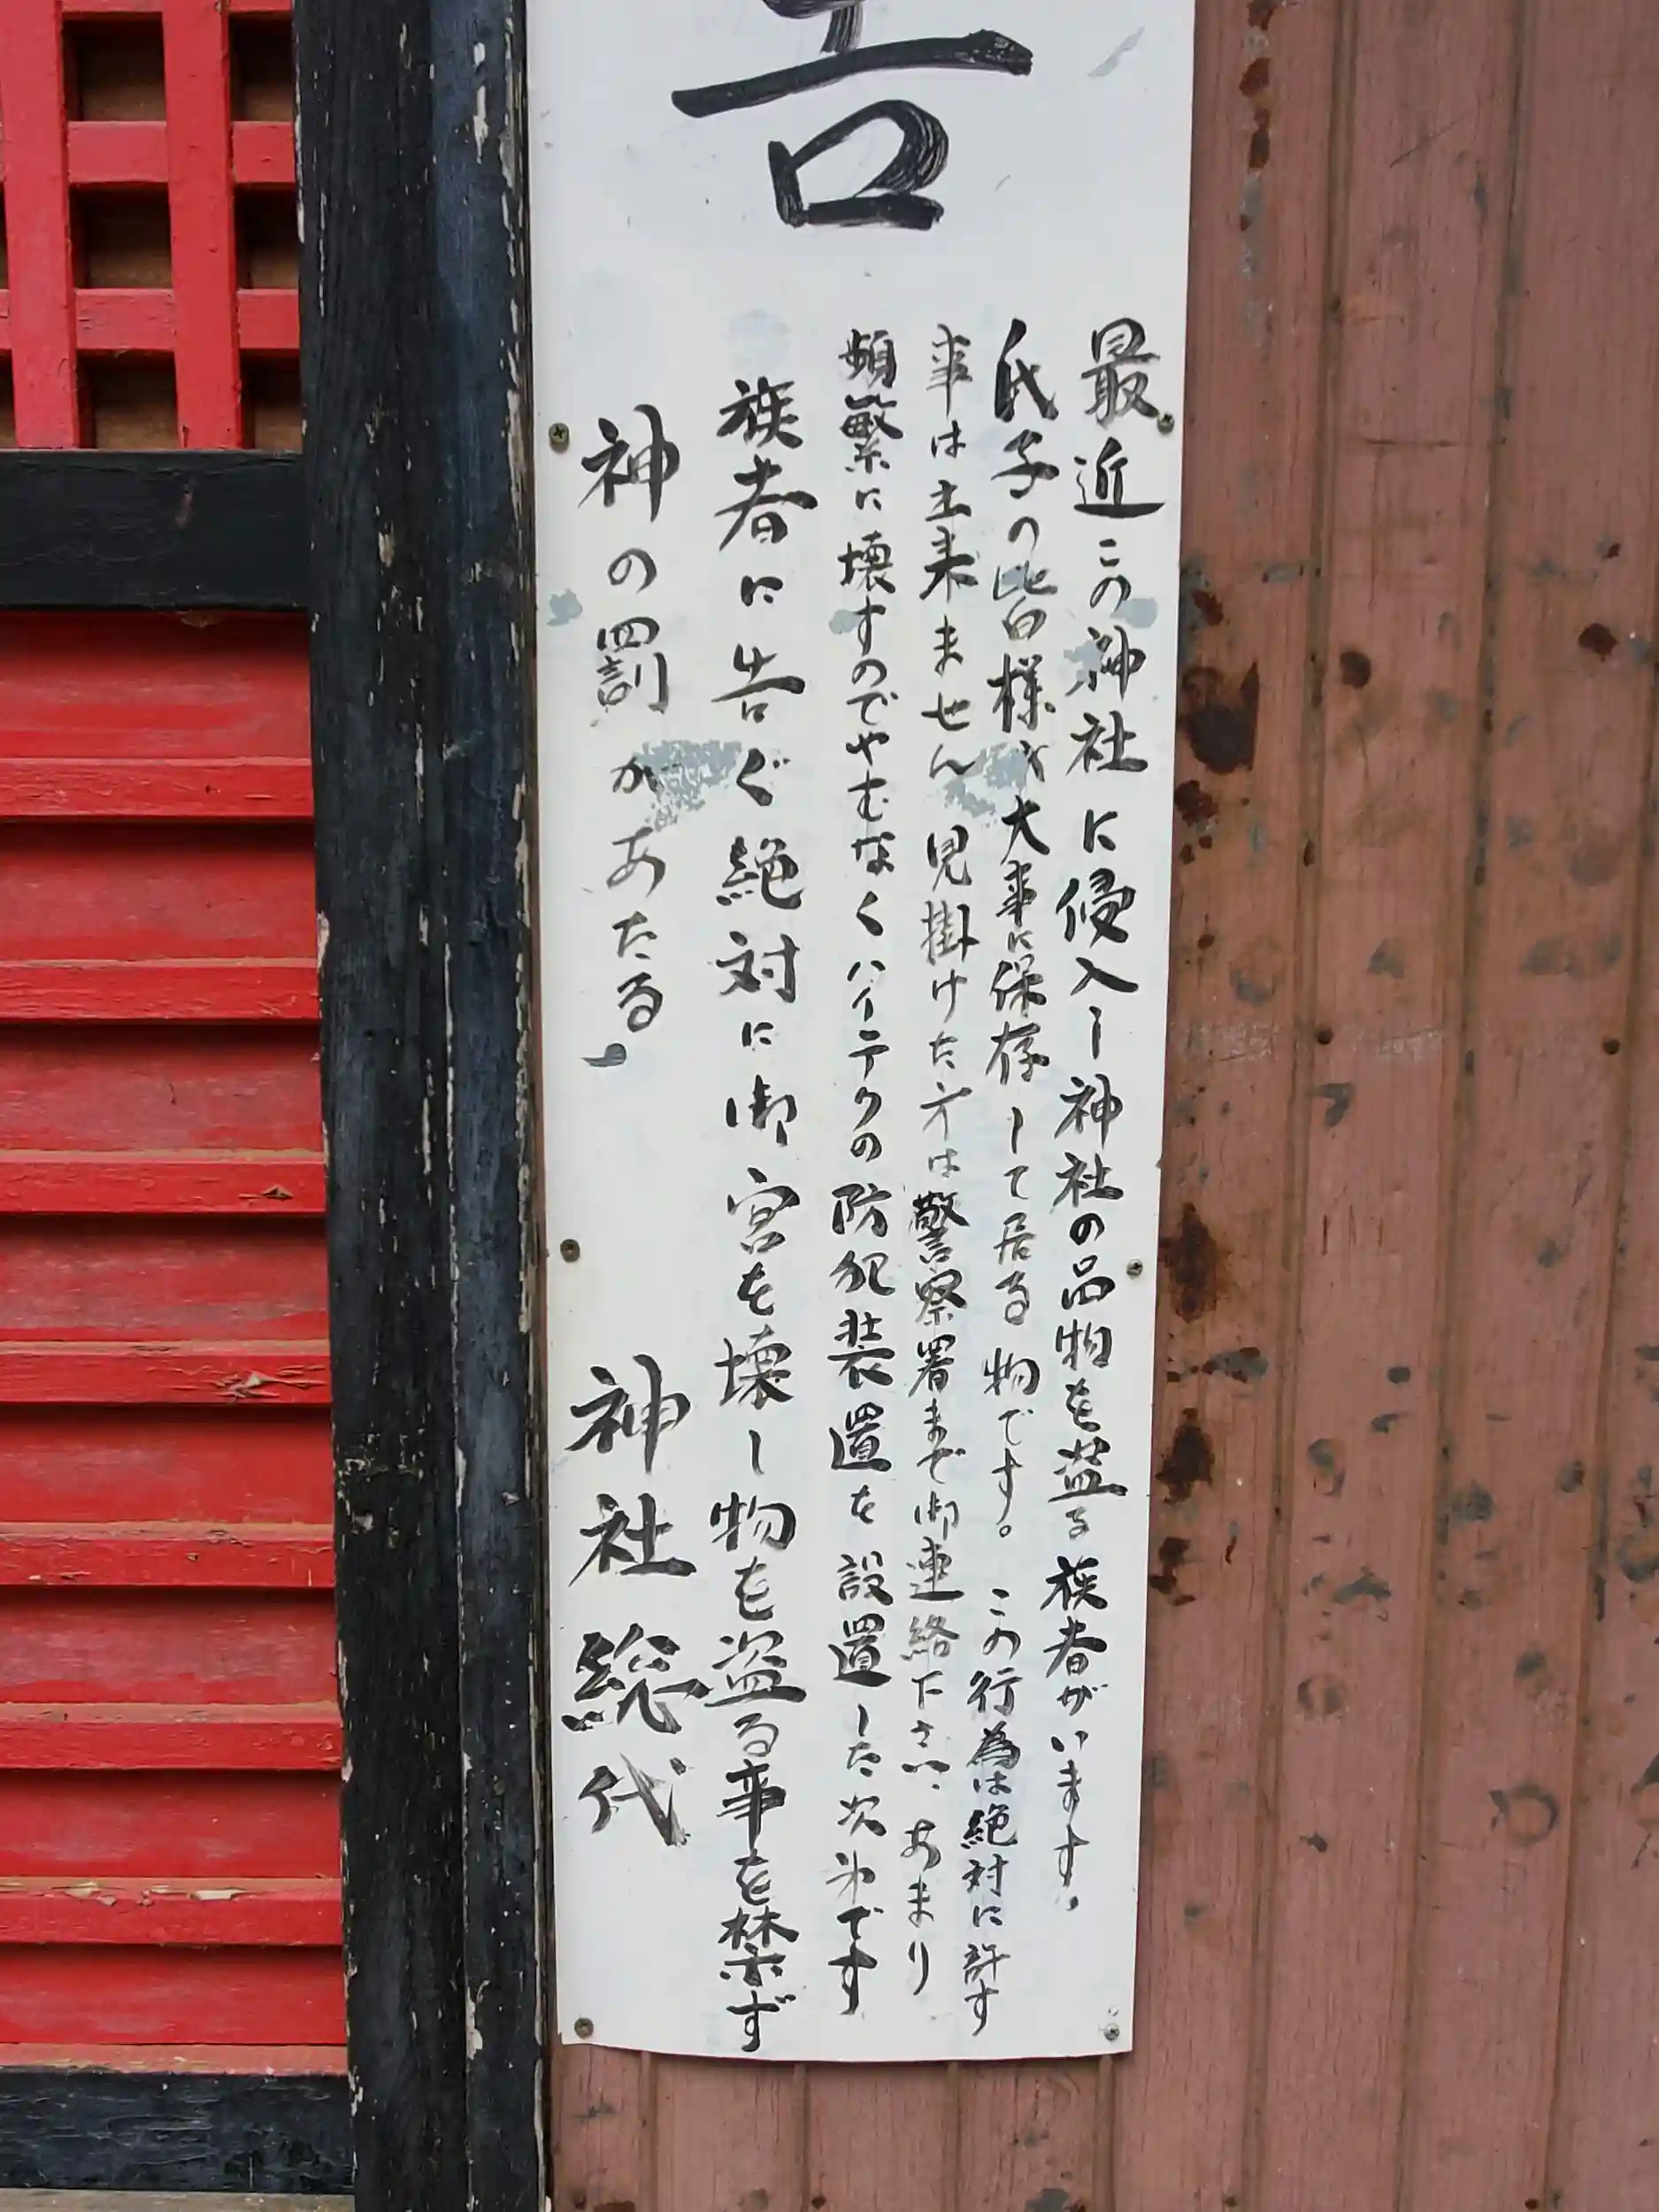 告
最近この神社に侵入し神社の品物を盗る族者がいます。
氏子の皆様が大事に保存して居る物です。この行為は絶対に許す
事は出来ません見掛けた方は警察署まで御連絡下さい、あまり
頻繁に壊すのでやむなくハイテクの防犯装置を設置した次第です
族者に告ぐ絶対に御宮を壊し物を盗る事を禁ず
神の罰があたる。
神社総代